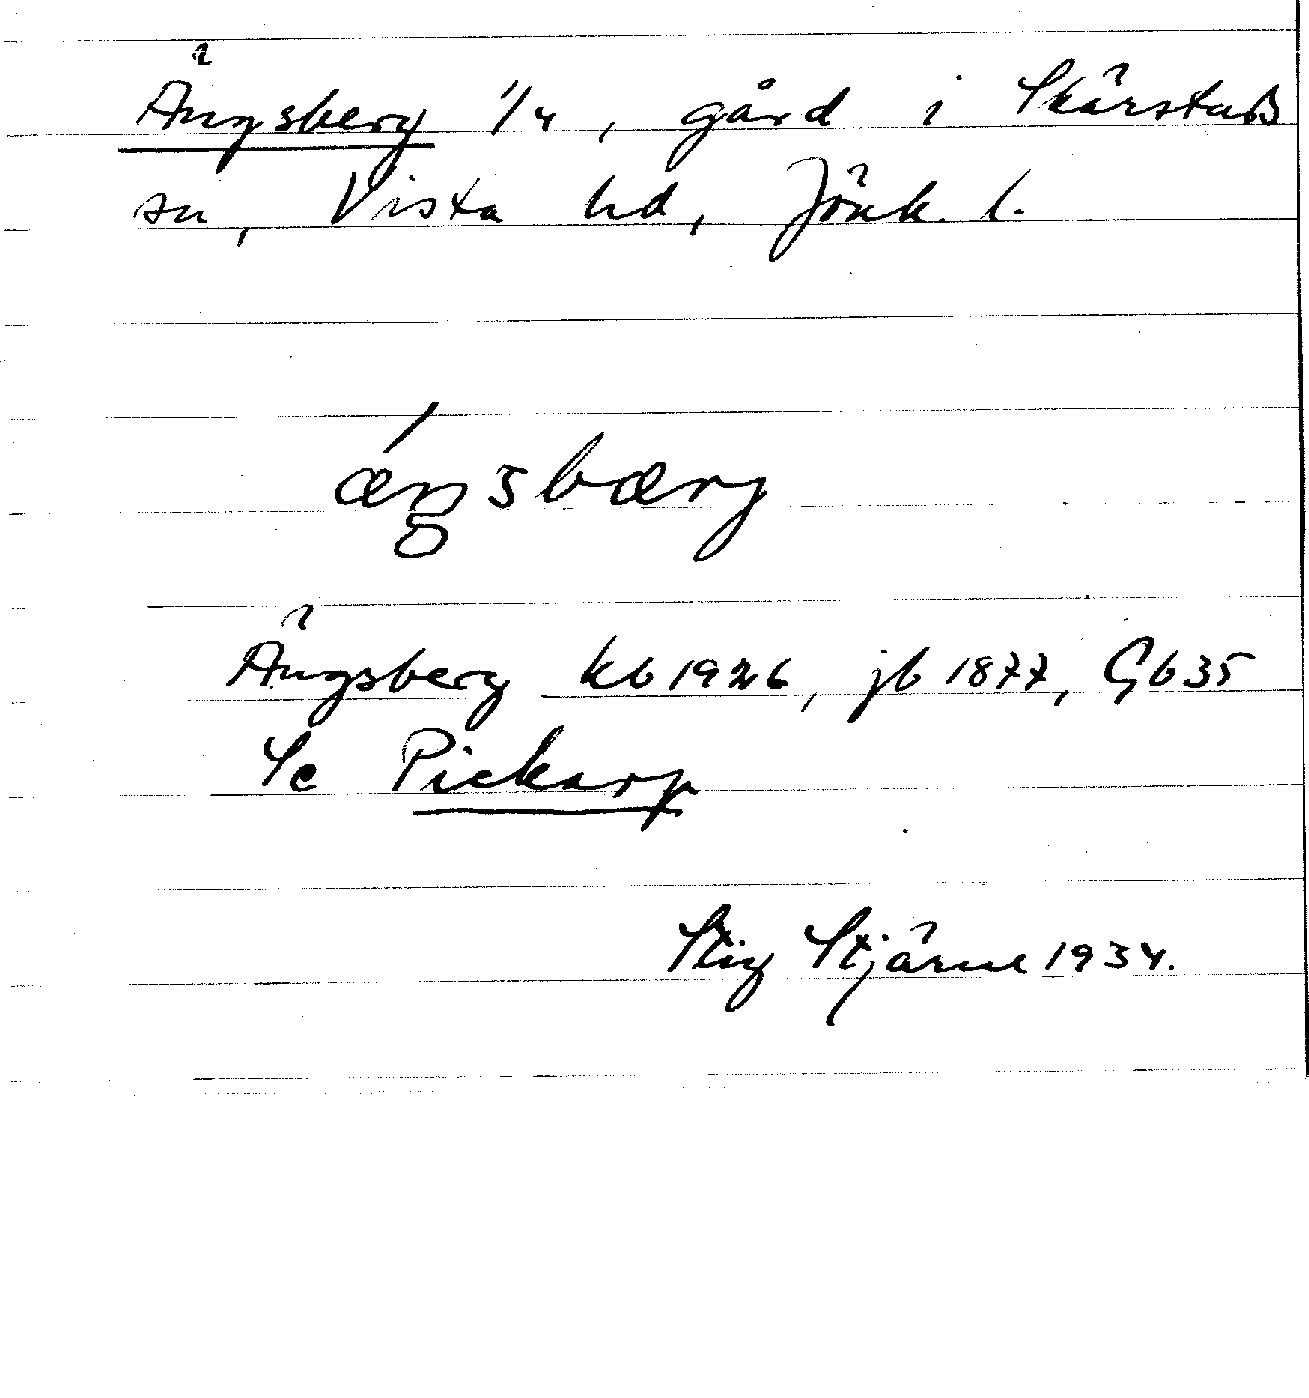 Ängsberg 1/4, gård i Skärstads
sn, Vista hd, Jönk. l.
æŋsbærg
Ängsberg kb 1926, jb 1877, Gb 35
Se Pickarp
Stig Stjärne 1934.